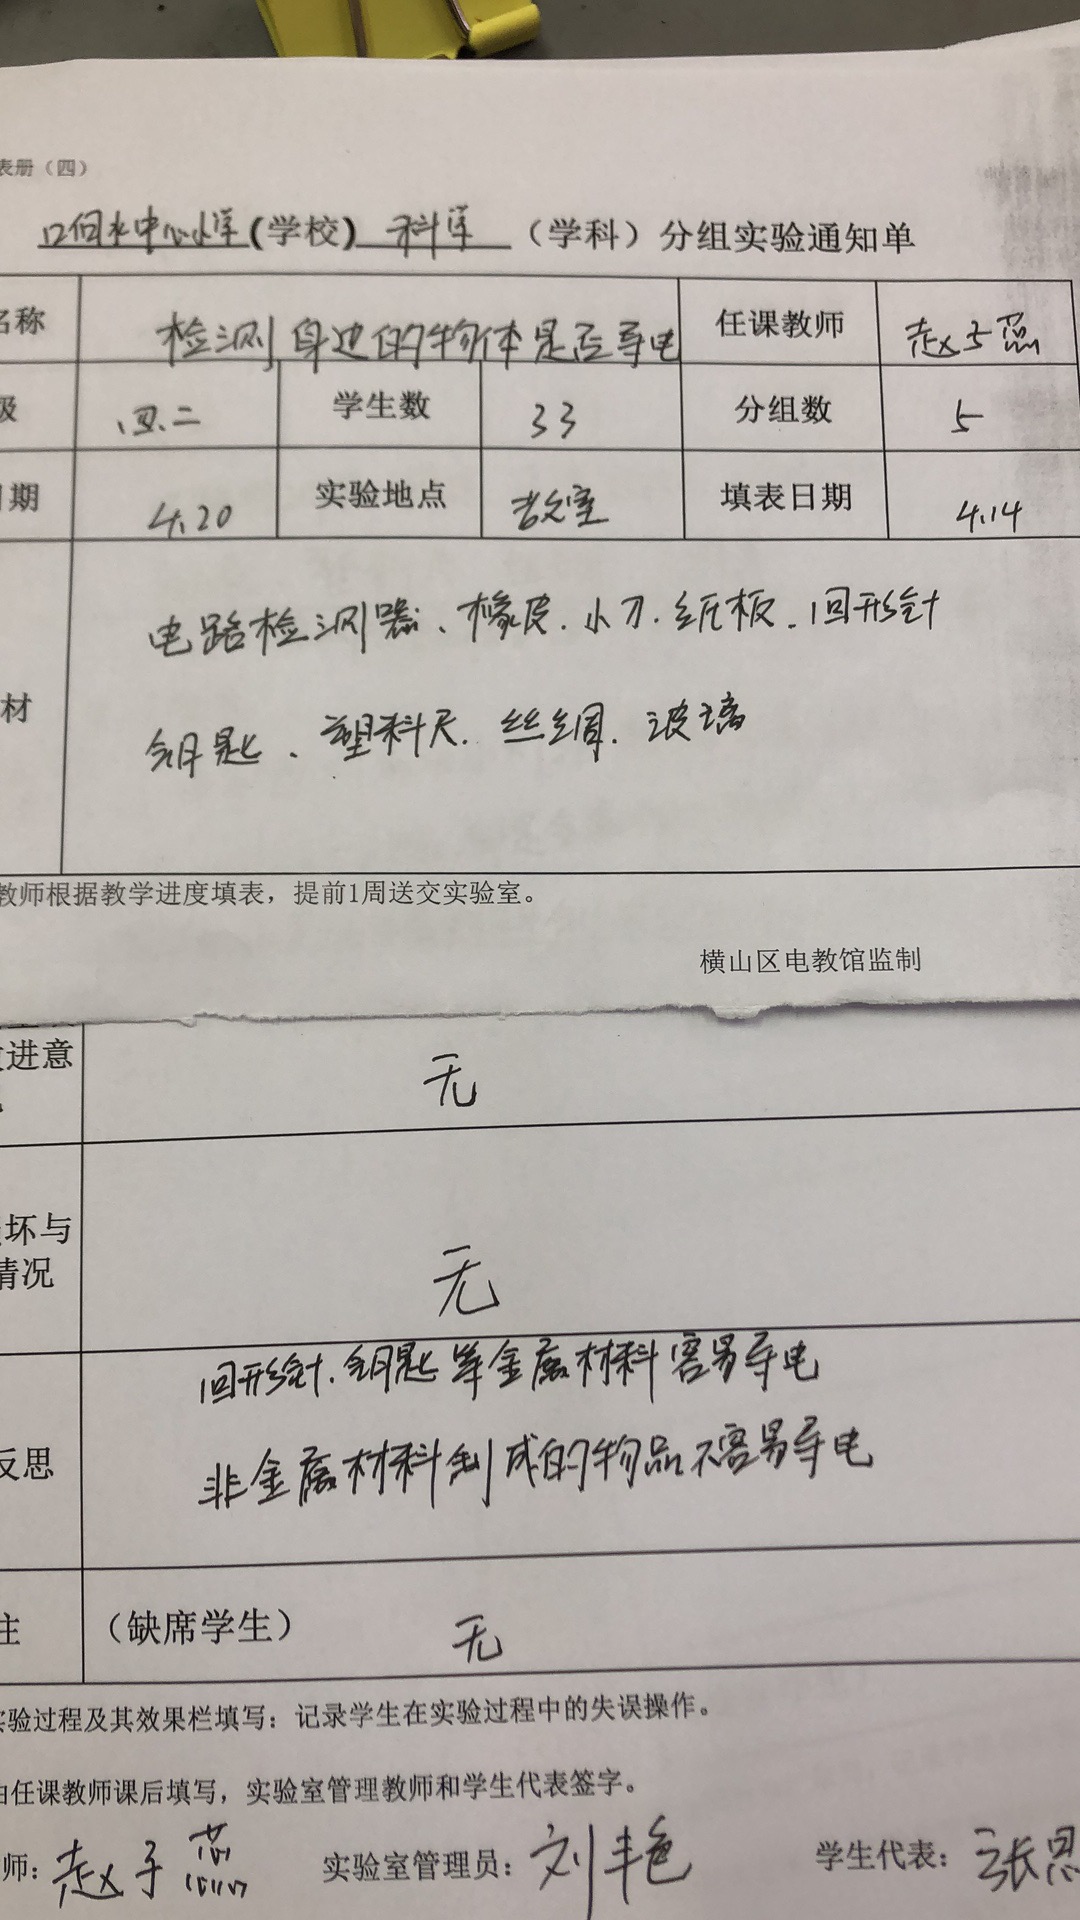 表册（四）
口伺水中心小学（学校） 科学 （学科）分组实验通知单
名称 检测身边的物体是否导电 任课教师 赵子蕊
级 四.二 学生数 33 分组数 5
日期 4.20 实验地点 教室 填表日期 4.14
电路检测器、橡皮.小刀.纸板.回形针
材
钥匙、塑料尺.丝绸.玻璃
教师根据教学进度填表，提前1周送交实验室。
横山区电教馆监制
进意 无
坏与
情况 无
回形针.钥匙等金属材料容易导电
反思 非金属材料制成的物品不容易导电
注 （缺席学生） 无
实验过程及其效果栏填写：记录学生在实验过程中的失误操作。
由任课教师课后填写，实验室管理教师和学生代表签字。
师：赵子蕊 实验室管理员：刘丰色 学生代表：张思